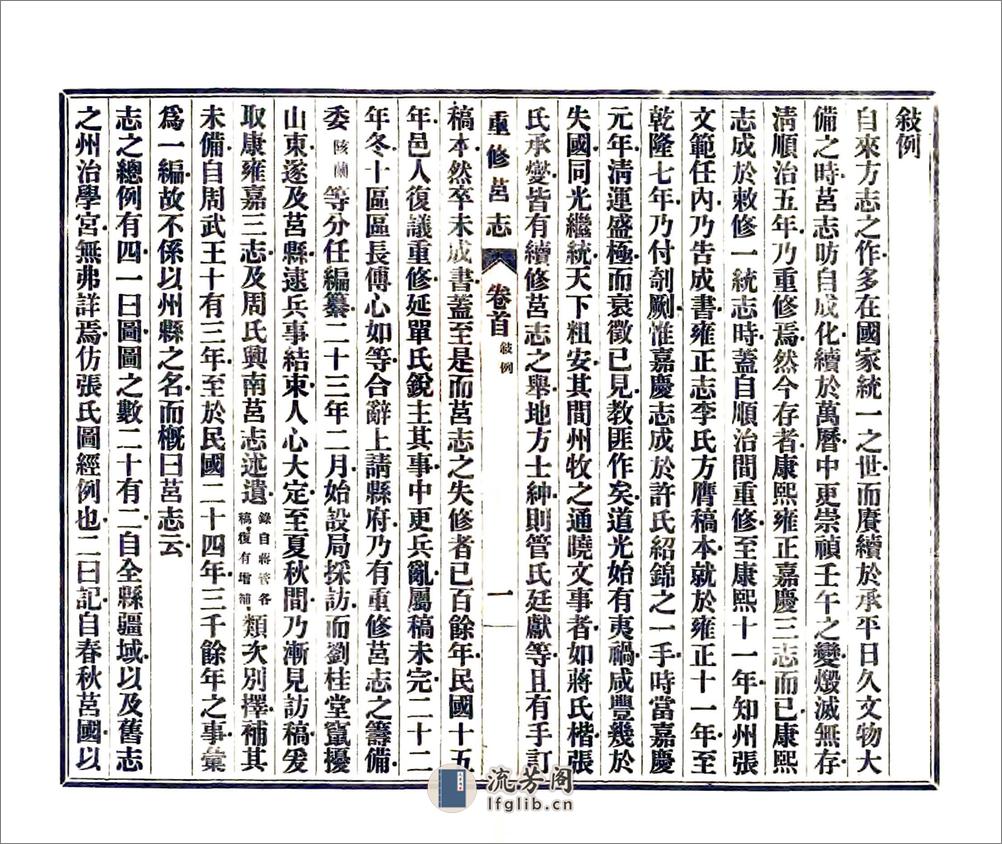 敍例
自來方志之作多在國家統一之世而賡續於承平日久文物大
備之時莒志昉自成化續於萬曆中更崇禎壬午之變燬滅無存
清順治五年乃重修焉然今存者康熙雍正嘉慶三志而已康熙
志成於敕修一統志時蓋自順治間重修至康熙十一年知州張
文範任內乃告成書雍正志李氏方膺稿本就於雍正十一年至
乾隆七年乃付剞劂惟嘉慶志成於許氏紹錦之一手時當嘉慶
元年清運盛極而衰徵已見教匪作矣道光始有夷禍咸豐幾於
失國同光繼統天下粗安其間州牧之通曉文事者如蔣氏楷張
氏承燮皆有續修莒志之舉地方士紳則管氏廷獻等且有手訂
重修莒志 卷首 敍例 一
稿本然卒未成書蓋至是而莒志之失修者已百餘年民國十五
年邑人復議重修延單氏銳主其事中更兵亂屬稿未完二十二
年冬十區區長傅心如等合辭上請縣府乃有重修莒志之籌備
委陔蘭等分任編纂二十三年二月始設局採訪而劉桂堂竄擾
山東遂及莒縣逮兵事結束人心大定至夏秋間乃漸見訪稿爰
取康雍嘉三志及周氏興南莒志述遺錄自蔣管各稿復有增補類次別擇補其
未備自周武王十有三年至於民國二十四年三千餘年之事彙
為一編故不係以州縣之名而概曰莒志云
志之總例有四一曰圖圖之數二十有二自全縣疆域以及舊志
之州治學宮無弗詳焉仿張氏圖經例也二曰記自春秋莒國以
流芳阁
lfglib.cn